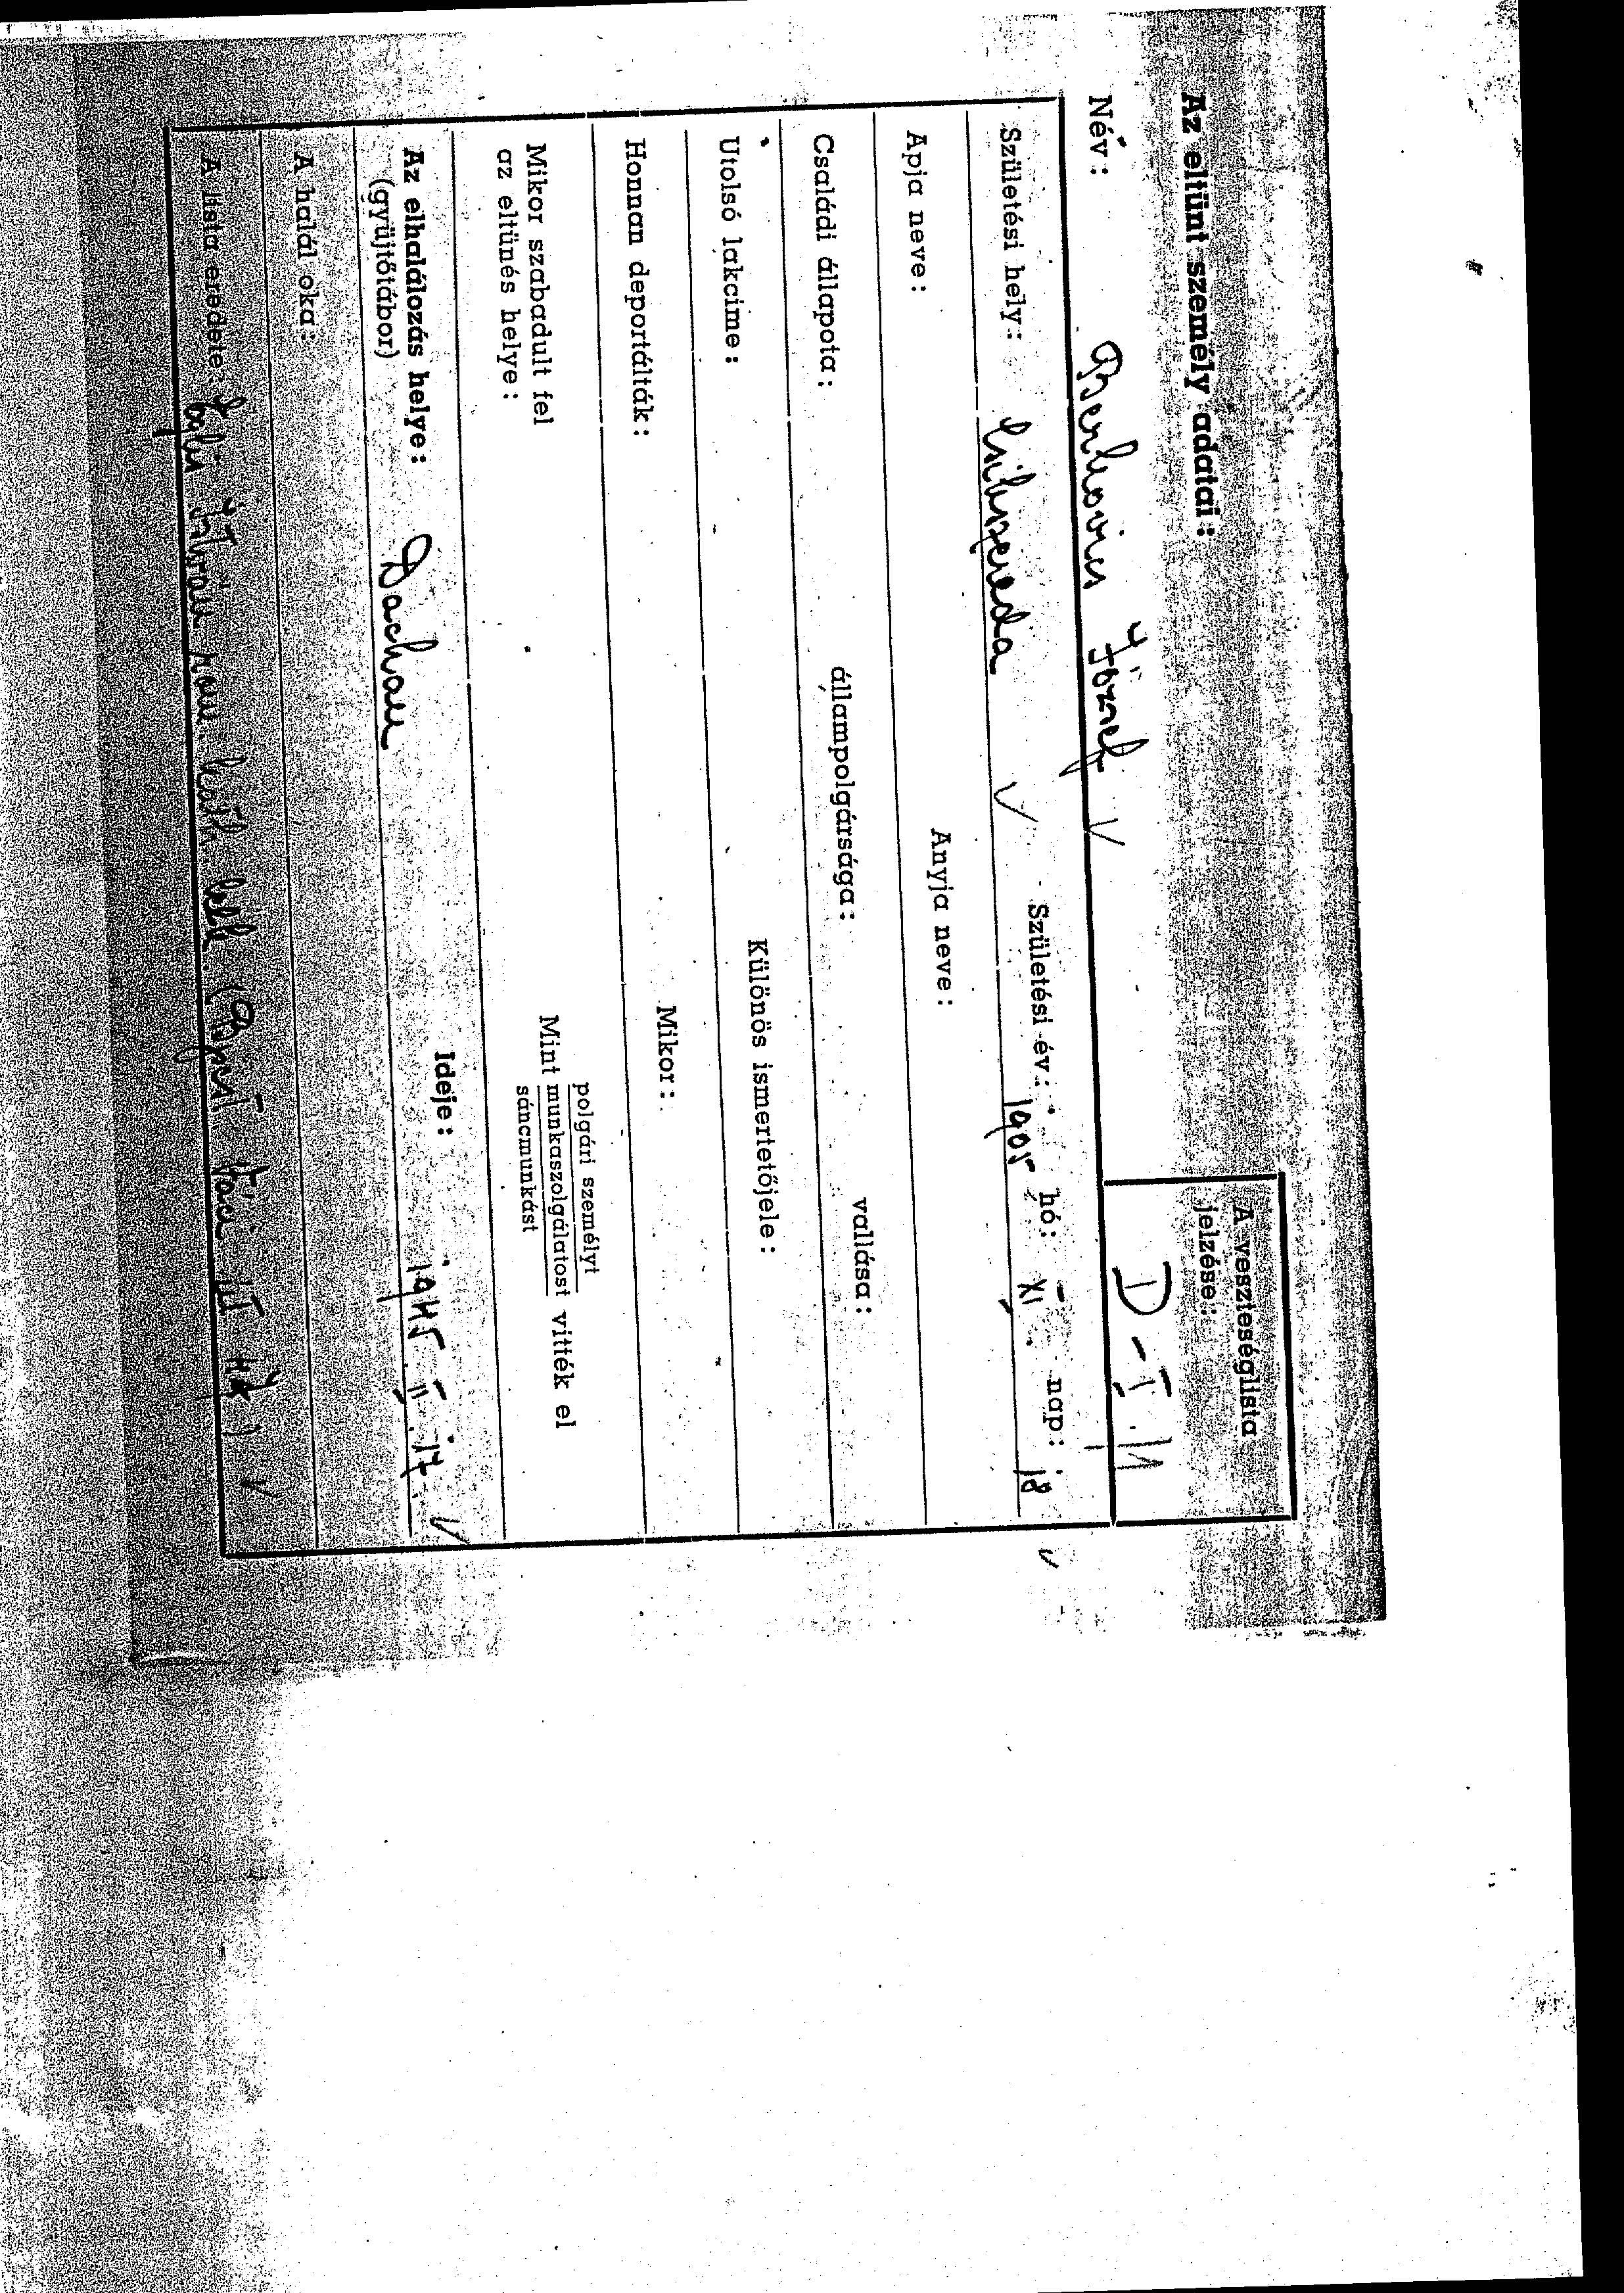 Az eltünt személy adatai:
A veszteséglista
jelzése:
D-I.
Név: Berkovics József
Születési hely: Csikszereda Születési év: 1905 hó: XI. nap: 18
Apja neve: Anyja neve:
Családi állapota: állampolgársága: vallása:
Utolsó lakcime: Különös ismertetőjele:
Honnan deportálták: Mikor:
Mikor szabadult fel
az eltünés helye:
polgári személyt
Mint munkaszolgálatost vitték el
sáncmunkást
Az elhalálozás helye: Dachau Ideje: 1945. II. 17.
(gyüjtőtábor)
A halál oka:
A lista eredete: